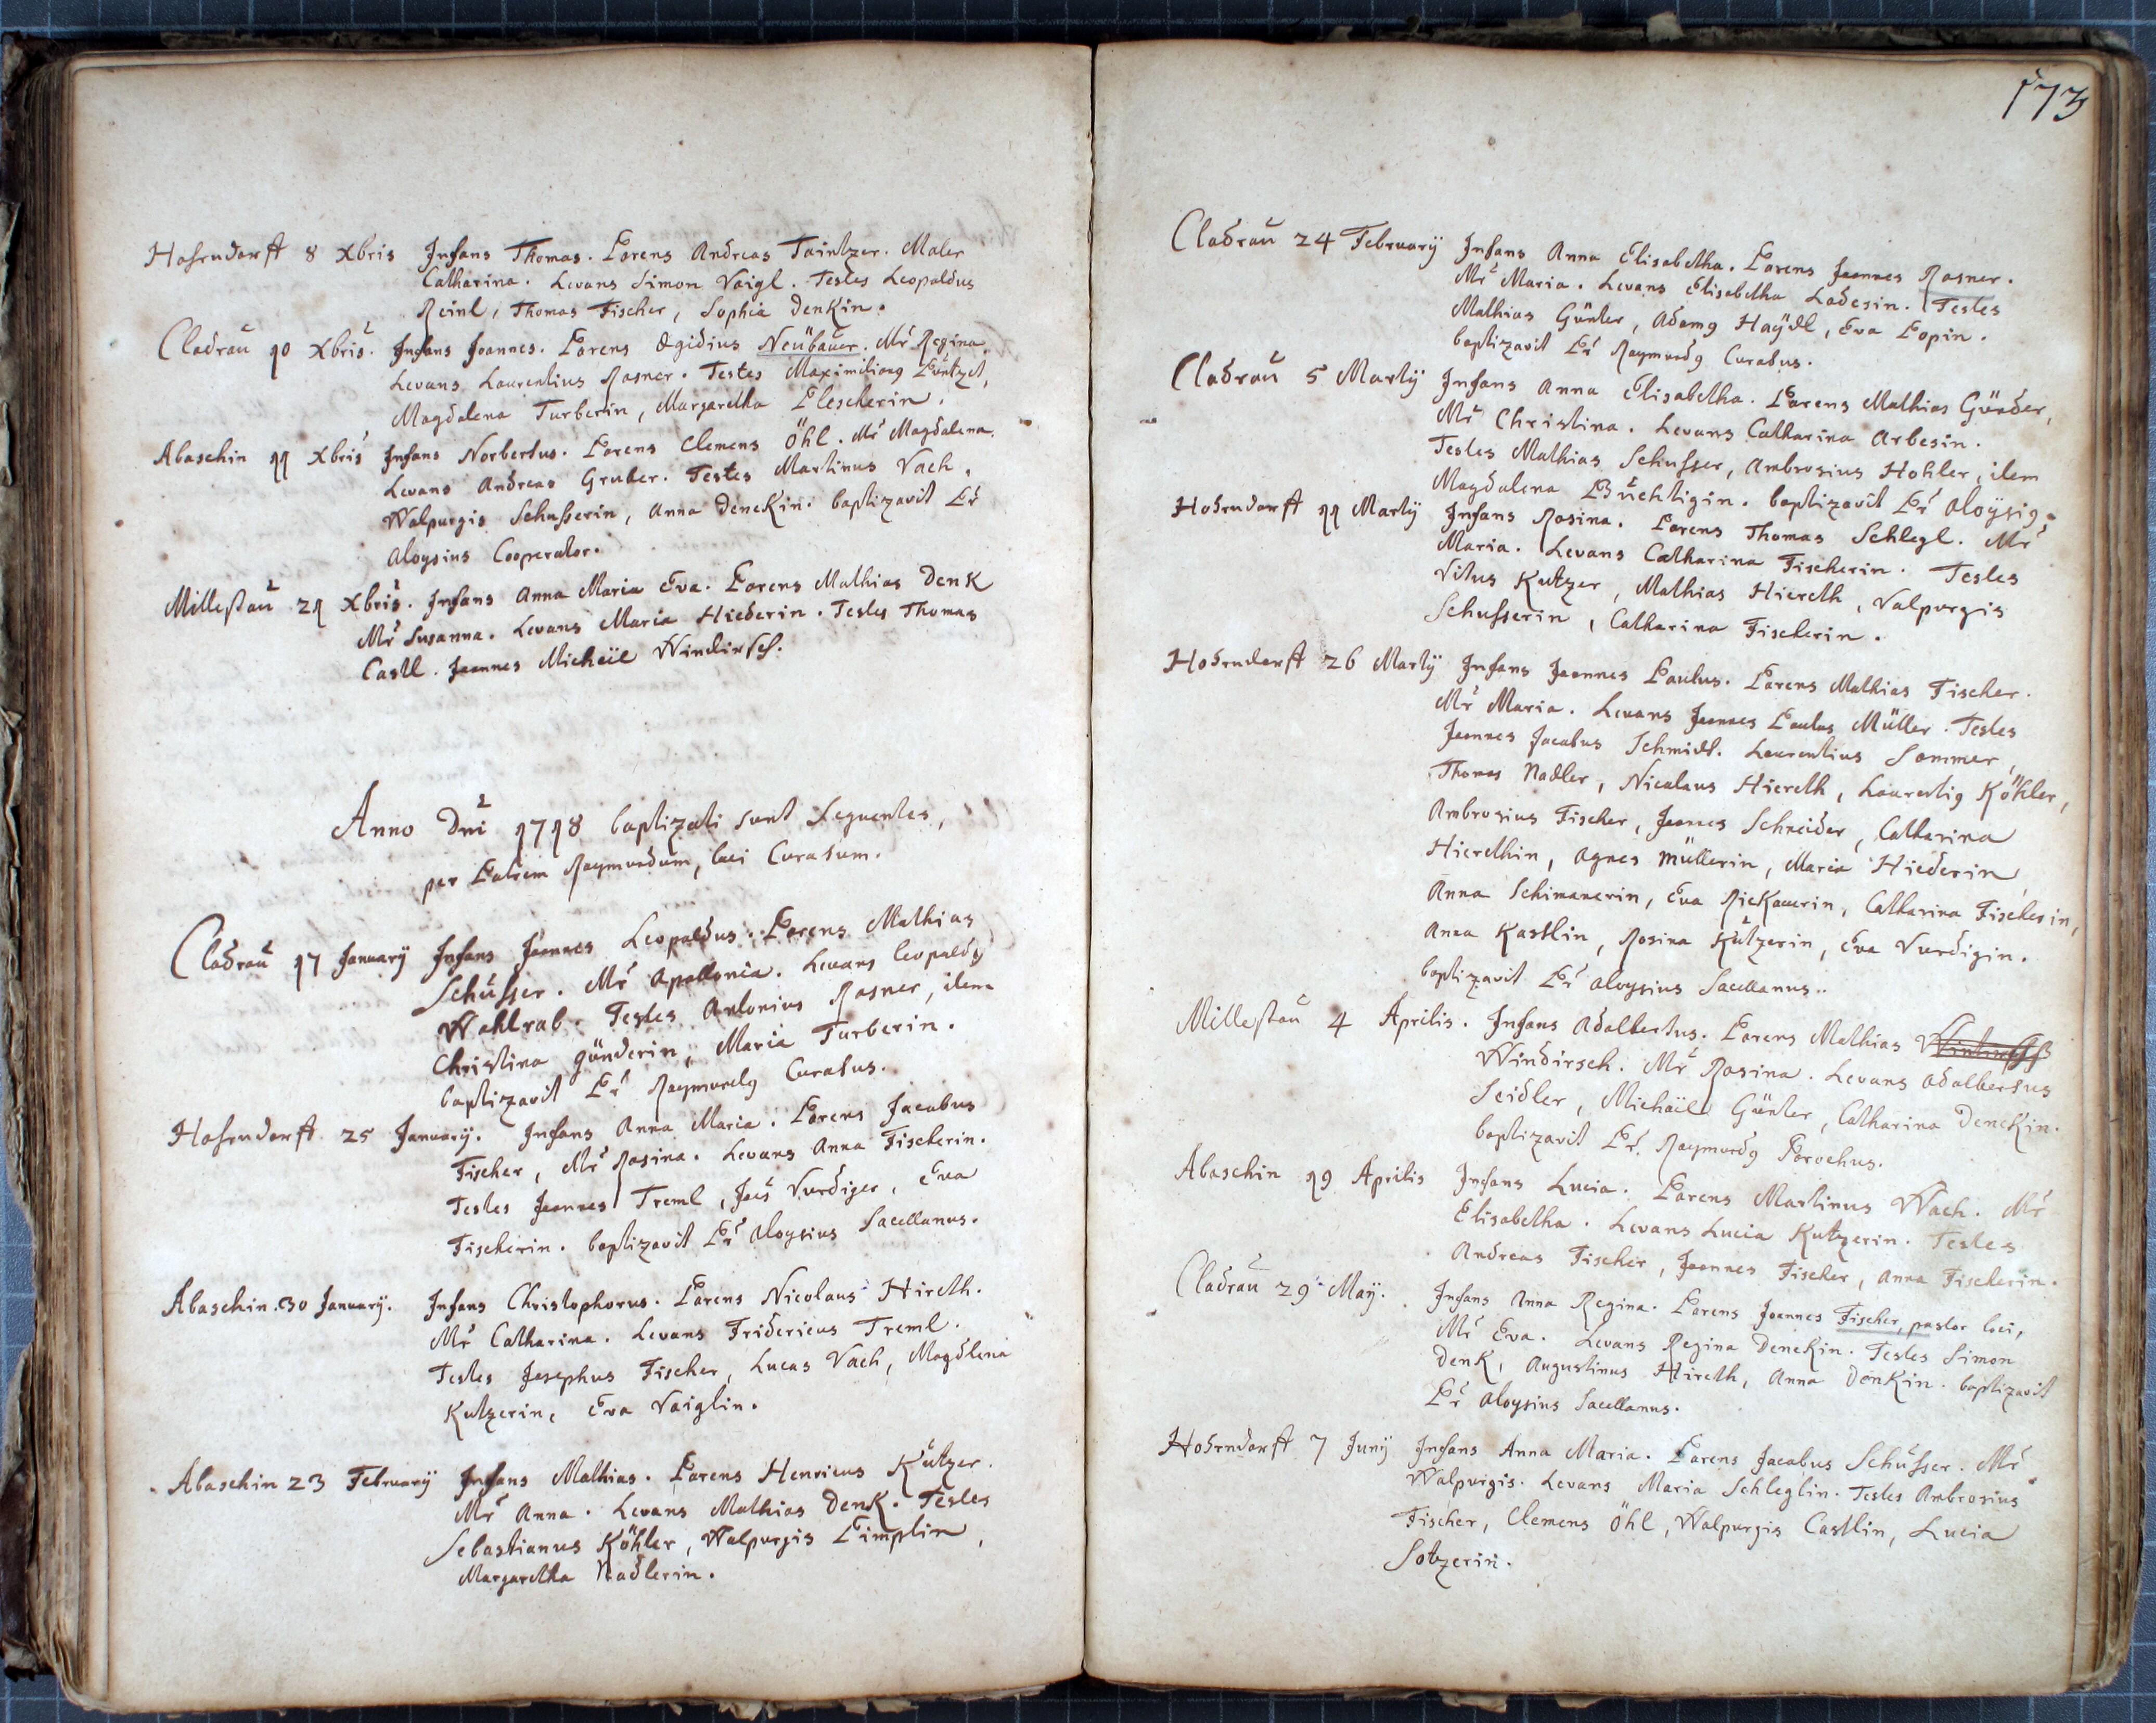 Hohrndorff 8 Xbris Infans Thomas. Parens Andreas Taintzer. Mater
Catharina. Levans Simon Vaigl. Testes Leopoldus
Reinl, Thomas Fischer, Sophia Denkin.
Cladrau 10 Xbris. Infans Joannes. Parens Ægidius Neübauer. Mr Regina
Levans Laurentius Rasner. Testes Maximiliang
Magdalena Turberin, Margaretha Plescherin.
Abaschin 11 Xbris Infans Norbertus. Parens Clemens Öhl. Mr Magdalena.
Levans Andreas Gruber. Testes Martinus Vach,
Walpurgis Schusserin, Anna Denckin. baptizavit Pr
Aloysius Cooperator.
Millestau 21 Xbris. Infans Anna Maria Eva. Parens Mathias Denk
Mr Susanna. Levans Maria Hiederin. Testes Thomas
Castl. Joannes Michäil Windirsch.
Anno Dni 1718 baptizati sunt sequentes,
per Patrem Raymundum, loci Curatum.
Cladrau 17 January Infans Joannes Leopoldus. Parens Mathias
Schusser. Mr Apollonia. Levans Leopoldg
Wohlrab. Testes Antonius Rasner, item
Christina Günderin, Maria Turberin.
baptizavit Pr Raymundg Curatus.
Hohrndorff 25 January. Infans Anna Maria. Parens Jacobus
Fischer, Mr Rosina. Levans Anna Fischerin.
Testes Joannes Treml, Joes Vurdiger, Eva
Fischerin. baptizavit Pr Aloysius Sacellanus.
Abaschin 30 January. Infans Christophorus. Parens Nicolaus Hireth.
Mr Catharina. Levans Fridericus Treml.
Testes Josephus Fischer, Lucas Vach, Magdlena
Kutzerin, Eva Vaiglin.
Abaschin 23 February Infans Mathias. Parens Henricus Kutzer.
Mr Anna. Levans Mathias Denk. Testes
Sebastianus Köhler, Walpurgis Pimplin,
Margaretha Nadlerin.
173
Cladrau 24 February Infans Anna Elisabetha. Parens Joannes Rasner.
Mr Maria. Levans Elisabetha Ladesin. Testes
Mathias Günter, Adamg Haÿdl, Eva Popin.
baptizavit Pr Raymundg Curatus.
Cladrau 5 Marty Infans Anna Elisabetha. Parens Mathias Günder,
Mr Christina. Levans Catharina Arbesin.
Testes Mathias Schusser, Ambrosius Hohler, item
Magdalena Büchtigin. baptizavit Pr Aloysig.
Hohrndorff 11 Marty Infans Rosina. Parens Thomas Schlegl. Mr
Maria. Levans Catharina Fischerin. Testes
Vitus Kutzer, Mathias Hiereth, Valpurgis
Schusserin, Catharina Fischerin.
Hohrndorff 26 Marty Infans Joannes Paulus. Parens Mathias Fischer.
Mr Maria. Levans Joannes Paulus Müller. Testes
Joannes Jacobus Schmidt. Laurentius Sommer,
Thomas Nadler, Nicolaus Hiereth, Laurentig Köhler,
Ambrosius Fischer, Joannes Schneider, Catharina
Hierethin, Agnes Müllerin, Maria Hiederin,
Anna Schimanerin, Eva Rickauerin, Catharina Fischerin,
Anna Kastlin, Rosina Kutzerin, Eva Vurdigin.
baptizavit Pr Aloysius Sacellanus.
Millestau 4 Aprilis. Infans Adalbertus. Parens Mathias
Windirsch. Mr Rosina. Levans Adalbertus
Seidler, Michäil Günter, Catharina Denckin.
baptizavit Pr. Raymundg Parochus.
Abaschin 19 Aprilis Infans Lucia. Parens Martinus Wach. Mr
Elisabetha. Levans Lucia Kutzerin. Testes
Andreas Fischer, Joannes Fischer, Anna Fischerin.
Cladrau 29 May. Infans Anna Regina. Parens Joannes Fischer, pastor loci,
Mr Eva. Levans Regina Denckin. Testes Simon
Denk, Augustinus Hireth, Anna Denkin. baptizavit
Pr Aloysius Sacellanus.
Hohrndorff 7 Juny Infans Anna Maria. Parens Jacobus Schusser. Mr
Walpurgis. Levans Maria Schleglin. Testes Ambrosius
Fischer, Clemens Öhl, Walpurgis Castlin, Lucia
Sotzerin.